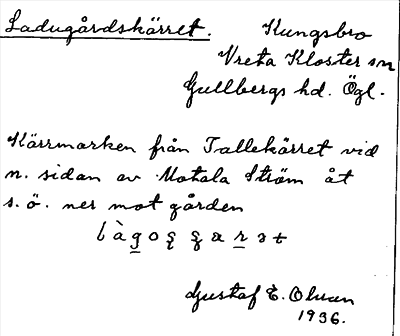 Ladugårdskärret.
Kungsbro
Vreta Kloster sn
Gullbergs hd. Ögl.
Kärrmarken från Tallekärret vid
n. sidan av Motala Ström åt
s. ö. ner mot gården
Gustaf E. Olsson
1936.